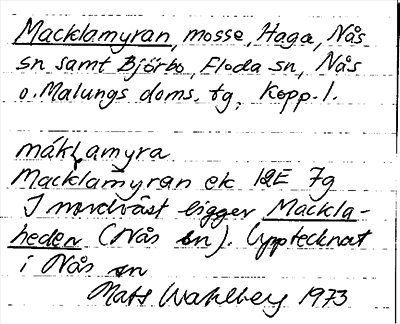 Macklamyran, mosse, Haga, Nås
sn samt Björbo, Floda sn, Nås
o. Malungs doms. tg, Kopp. l.
máklamyra
Macklamyran ek 12E 7g
I nordväst ligger Mackla-
heden (Nås sn). Upptecknat
i Nås sn
Mats Wahlberg 1973